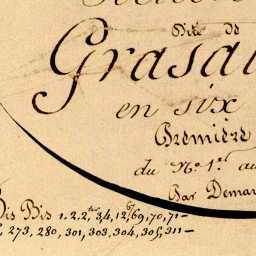 Dite de
Grasal
en six
Première
du N.º 1.er au
Par Demar
Dis Bis 1. 2. 2.ter 3, 4, 12, 69, 70, 71-
, 273, 280, 301, 303, 304, 305, 311-